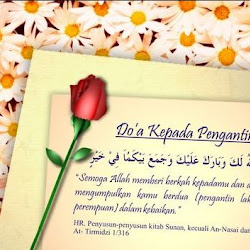 Do'a Kepada Pengantin
لَكَ وَبَارَكَ عَلَيْكَ وَجَمَعَ بَيْنَكُمَا فِيْ خَيْرٍ
"Semoga Allah memberi berkah kepadamu dan a
mengumpulkan kamu berdua (pengantin lak
perempuan) dalam kebaikan."
HR. Penyusun-penyusun kitab Sunan, kecuali An-Nasai dan
At- Tirmidzi 1/316